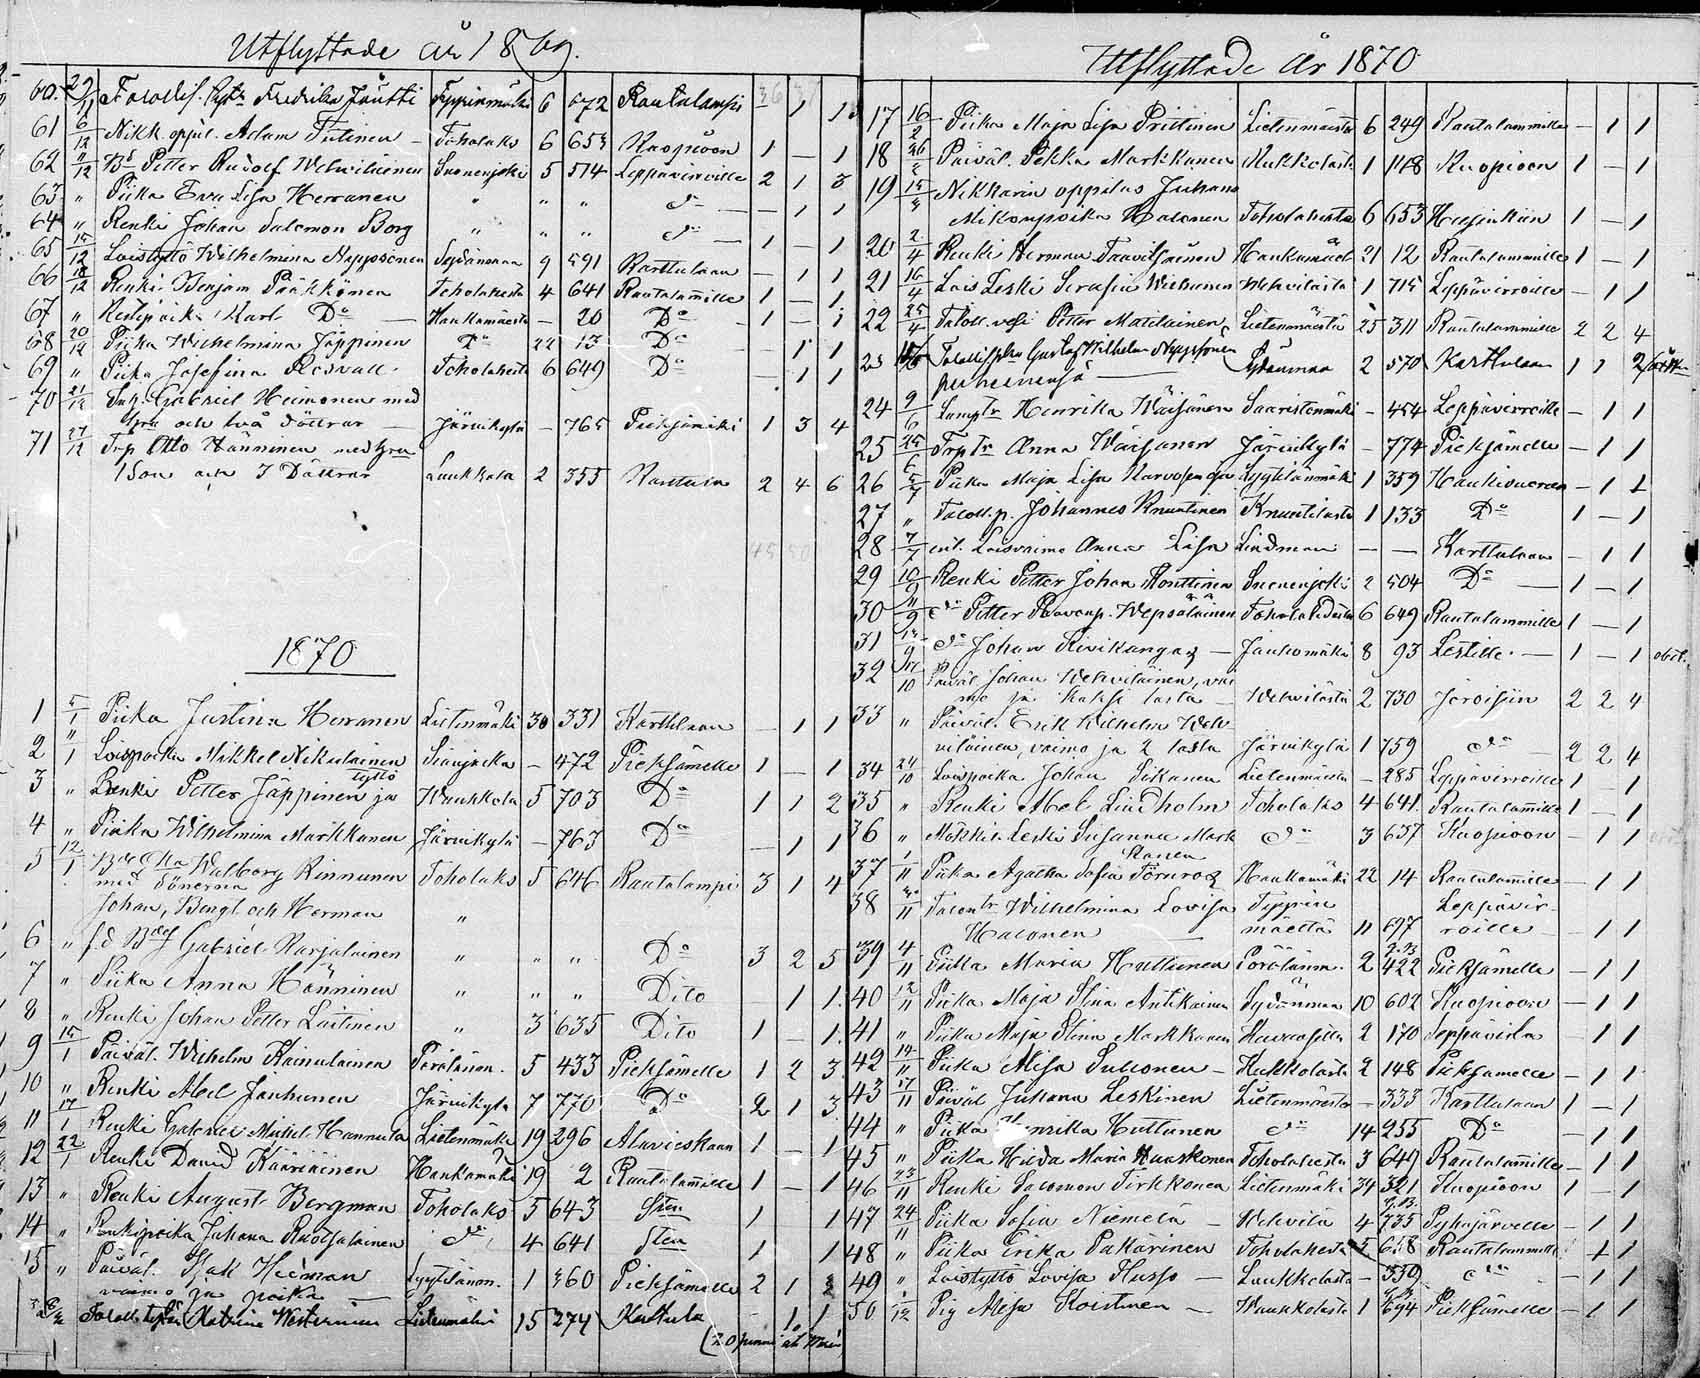 Utflyttade år 1869.
60. 29/11 Fredrika Jäntti 6 672 Rautalampi 1 1
61 6/12 Nikk. oppil. Adam Tutinen Toholaks 6 653 Kuopioon 1 — 1
62 "/12 Petter Rudolf Wehviläinen Suonenjoki 5 574 Leppävirroille 2 1 3
63 " Piika Eva Lisa Herranen " " " do — 1 1
64 " Renki Johan Salomon Borg " " " do 1 — 1
65 15/12 Loistyttö Wilhelmina Nypssönen Sydänmaa 9 591 Karttulaan — 1 1
66 18/12 Renki Benjam Pääkkönen Toholahesta 4 641 Rautalammille 1 — 1
67 " Karl Do Haukamäesta — 20 Do 1 — 1
68 20/12 Piika Wilhelmina Jäppinen Do 22 13 Do — 1 1
69 " Piika Josefina Rosvall Toholahesta 6 649 Do — 1 1
70 21/12 Gabriel Heimonen med
hru och två döttrar Järvikylä — 765 Pieksämäki 1 3 4
71 27/12 Trp Otto Hänninen med hru
1 Son och 3 Döttrar Luukkola 2 355 Karttula 2 4 6
45 50
1870
1 5/1 Piika Justina Herranen Lietenmäki 30 331 Karttulaan — 1 1
2 "/1 Loispoika Mikkel Nikulainen — 472 Pieksämelle 1 — 1
3 " Renki Petter Jäppinen ja tyttö Waukkola 5 703 Do 1 1 2
4 " Piika Wilhelmina Markkanen Järvikylä — 763 Do — 1 1
5 12/1 Walborg Rinnunen Toholaks 5 646 Rautalampi 3 1 4
med Sönerna
Johan, Bengt och Herman "
6 " f.d Gabriel Karjalainen " " " Do 3 2 5
7 " Piika Anna Hänninen " " " Dito 1 1
8 " Renki Johan Petter Laitinen " 3 635 Dito 1 — 1
9 15/1 Päiväl. Wilhelm Kainulainen Pörölänm. 5 433 Pieksämelle 1 2 3
10 " Renki Abel Janhunen Järvikylä 7 770 Do 2 1 3
11 17/1 Renki Gabriel Mikkel Hannula Lietenmäki 19 296 Alavieskaan 1 — 1
12 22/1 Renki David Kääriäinen Haukamäki 19 2 Rautalammille 1 — 1
13 " Renki August Bergman Toholaks 5 643 Sten 1 1
14 " Renkipoika Juhana Ruotsalainen do 4 641 Sten 1 1
15 " Päiväl. Isak Heiman Lyytilänm. 1 360 Pieksämelle 2 1 3
vaimo ja poika
Katrina Westerinen Lietenmäki 15 274 Karttula 1 1
Utflyttade År 1870
17 16/2 Piika Maja Lisa Prittinen Lietenmäestä 6 249 Rautalammille — 1 1
18 26/2 Päiväl. Pekka Markkanen Kukkolasta 1 148 Kuopioon 1 — 1
19 15/" Nikkarin oppilas Juhana
Mikonpoika Halonen Toholahesta 6 653 Helsinkiin 1 — 1
20 2/4 Renki Herman Taavitsainen 21 12 Rautalammille 1 — 1
21 16/4 Lois Leski Serafia Wiehunen Wehvilästä 1 715 Leppävirroille — 1 1
22 25/4 Taloll. vesi Petter Matilainen Lietenmäestä 25 311 Rautalammille 2 2 4
23 Gustaf Wilhelm Nypssönen Sydänmaa 2 570 Karttulaan 1 1 2
perheinensä
24 9/6 Henrika Wäisänen Saaristenmäki — 454 Leppävirroille — 1 1
25 Anna Wäisänen Järvikylä — 774 Pieksämelle — 1 1
26 5/7 Piika Maja Lisa Lyytilänmäki 1 359 Haukivuoren — 1 1
27 " Taloll. p. Johannes Knuutinen Knuutilasta 1 133 Do 1 — 1
28 7/7 Loisvaimo Anna Lisa Lindman — — Karttulaan — 1 1
29 10/9 Renki Petter Johan Konttinen Suonenjoki 2 504 Do 1 — 1
30 "/9 do Petter Wepsäläinen 6 649 Rautalammille 1 — 1
31 do Johan Kivikangas — Jauhomäki 8 93 Lestille — 1 — 1
32 Päiväl Johan Wehviläinen, vai
mo ja kaksi lasta — Wehvilästä 2 730 Joroisiin 2 2 4
33 " Päiväl. Erik Wilhelm Weh
viläinen, vaimo ja 2 lasta Järvikylä 1 759 do 2 2 4
34 24/10 Loispoika Johan Sikanen Lietenmäestä — 285 Leppävirroille 1 — 1
35 " Renki Abel Lindholm Toholaks 4 641 Rautalammille 1 — 1
36 " Mökki Leski Susanna Mark
kanen do 3 637 Kuopioon — 1 1
37 1/11 Piika Agatha Sofia Törnroos Haukamäki 22 14 Rautalammille — 1 1
38 Wilhelmina Lovisa Tyyrin Leppävir-
Halonen mäeltä 11 697 roille — 1 1
39 4/11 Piika Maria Huttunen Pörölänm. 2 422 Pieksämelle — 1 1
40 12/11 Piika Maja Stina Antikainen Sydänmaa 10 602 Kuopioon — 1 1
41 " Piika Maja Stina Markkanen 2 170 Leppävirta — 1 1
42 14/11 Piika Alisa Sullonen — Kukkolasta 2 148 Pieksämelle — 1 1
43 17/11 Päiväl Juhana Leskinen Lietenmäesta — 333 Karttulaan 1 — 1
44 " Piika Henrika Huttunen do 14 255 Do — 1 1
45 " Piika Hilda Maria Huuskonen Toholahesta 3 649 Rautalammille — 1 1
46 23/11 Renki Salomon Tirkkonen Lietenmäki 34 321 Kuopioon 1 — 1
47 24/11 Piika Sofia Niemelä — Wehvilä 4 735 Pyhäjärvelle — 1 1
48 " Piika Erika Pakarinen Toholahesta 5 648 Rautalammille — 1 1
49 " Loistyttö Lovisa Husso — Luukkolasta — 339 do — 1 1
50 1/12 Pig Alisa Koistinen — Waukkolasta 1 694 Pieksämelle — 1 1